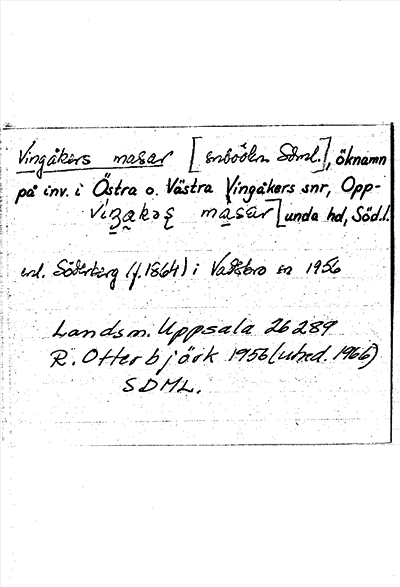 Vingåkers masar [snbööln Sdml.], öknamn
på inv. i Östra o. Västra Vingåkers snr, Opp-
masar] unda hd, Söd.l.
enl. Söderberg (f. 1864) i Vadsbro sn 1956
Landsm. Uppsala 26289
R. Otterbjörk 1956 (utred. 1966)
SDML.